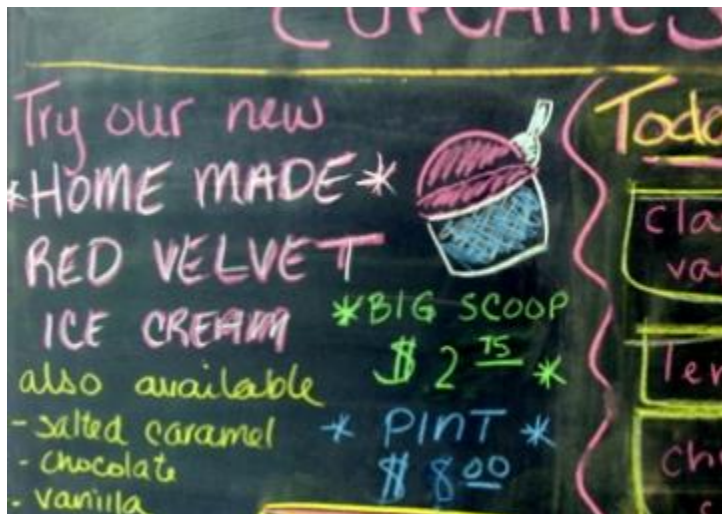 CUPCAKES
Try our new
*HOME MADE*
RED VELVET
ICE CREAM
*BIG SCOOP
$2.75*
also available
- salted caramel
- chocolate
- vanilla
*PINT*
$8.00